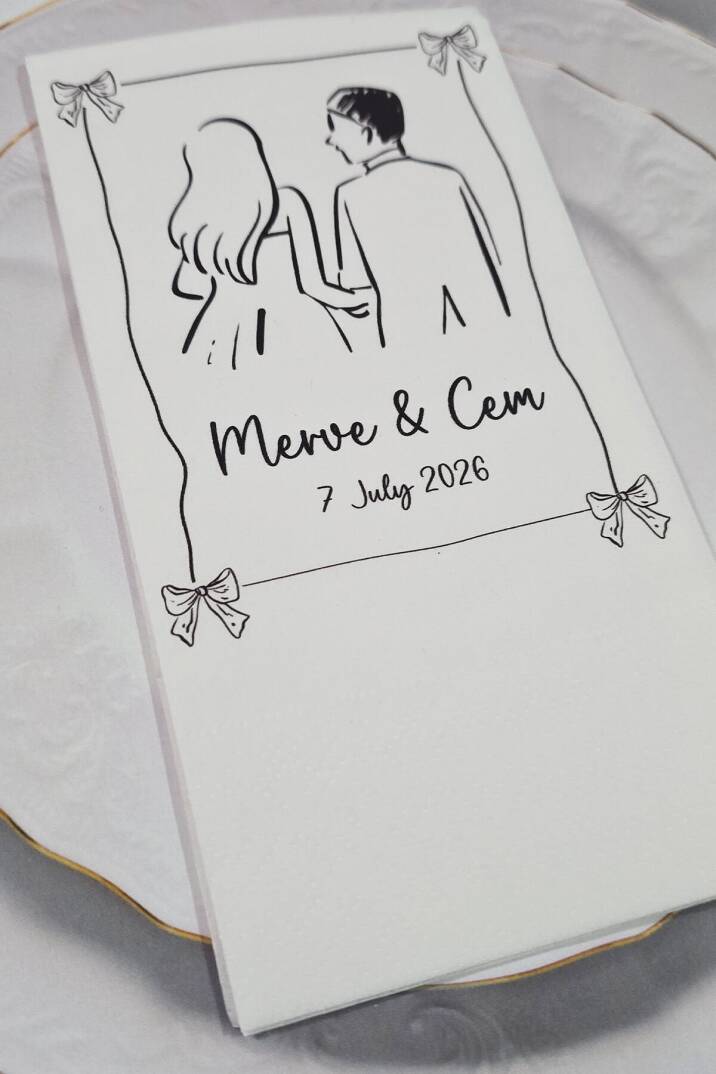 Merve & Cem
7 July 2026